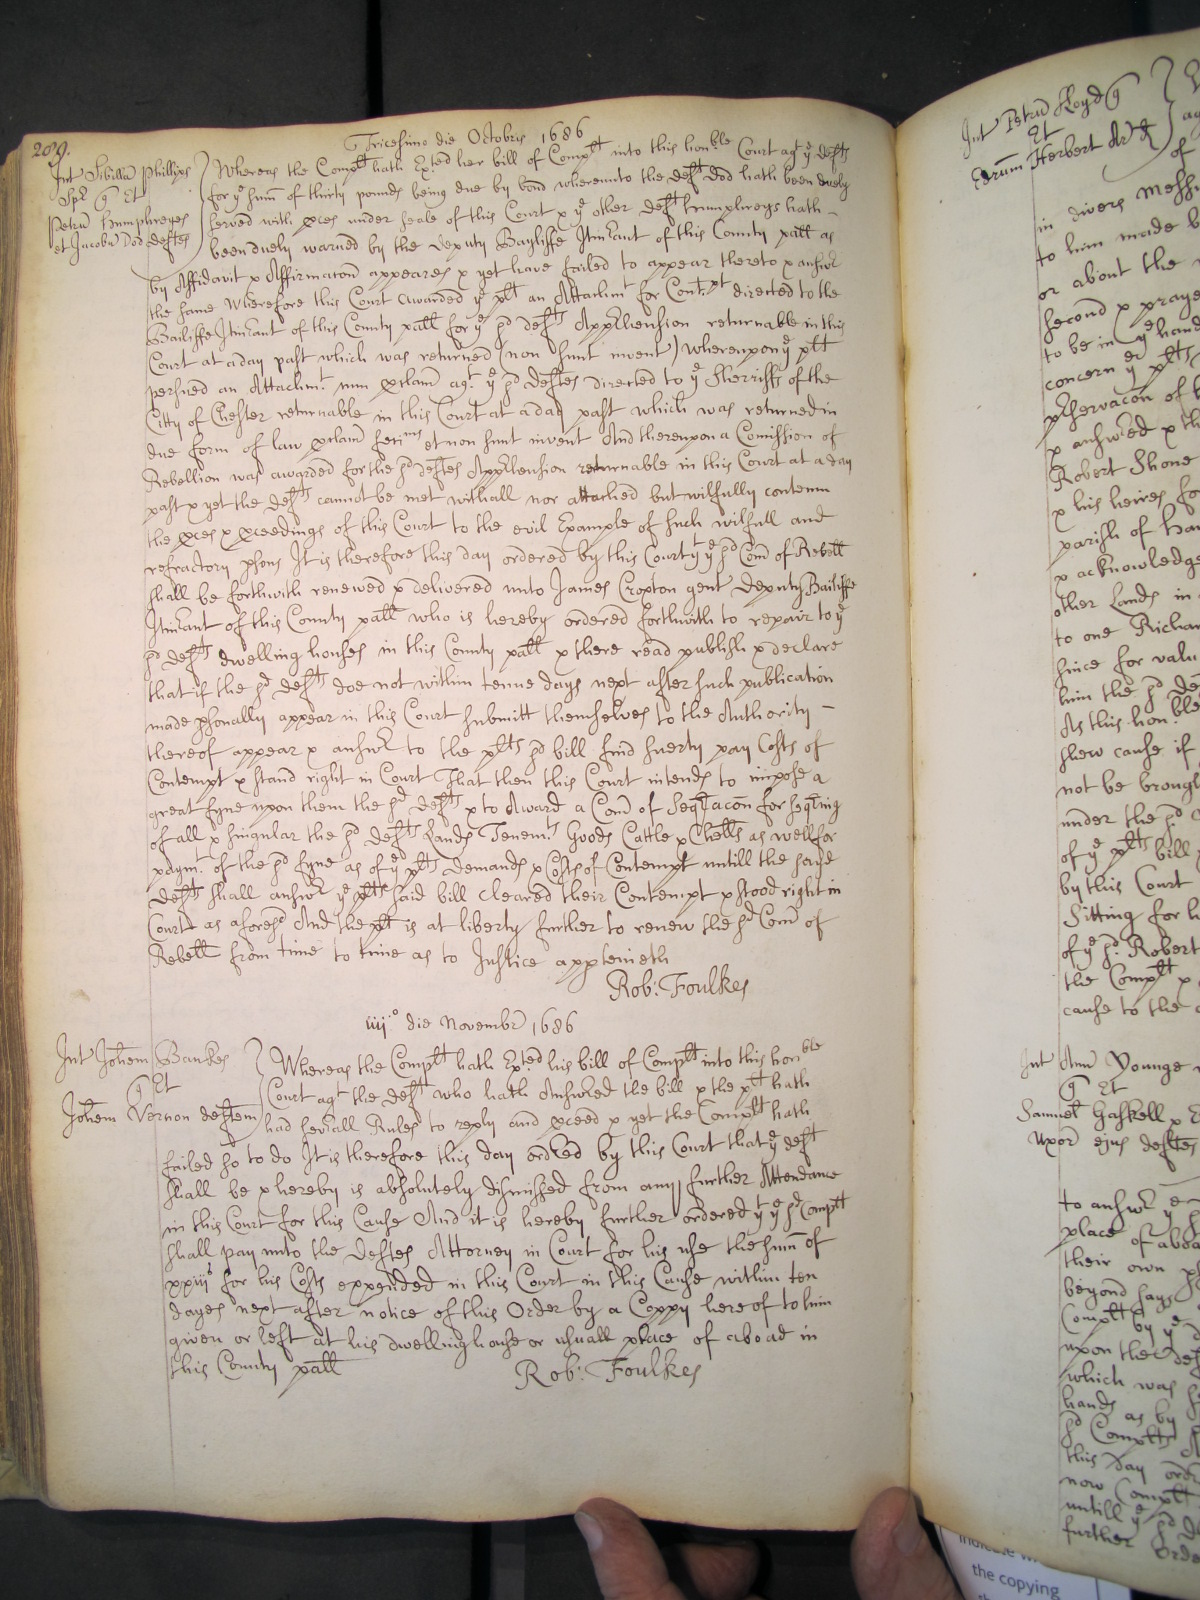 289.
Tricesimo die Octobris 1686
Int Sibillm Phillips
Spr q Et
Petru Humphreyes
et Jacobu Dod deftes
Whereas the Complt hath Exted her bill of Complt into this honble Court agt ye defts
for ye summ of thirty pounds being due by bond whereunto the deft Dod hath been duely
served with pces under seale of this Court & ye other deft Humphreys hath –
been duely warned by the deputy Bayliffe Itinrant of this County pall as
by Affidavit & Affirmacon appeares & yet have failed to appear thereto & answr
the same Wherefore this Court awarded ye plt an Attachmt for Contpt directed to the
Bailiffe Itinrant of this County pall for ye sd defts Apprhension returnable in this
Court at a day past which was returned (non sunt invent) Whereupon ye plt
persued an Attachmt cum proclam agt ye sd deftes directed to ye Sherriffs of the
Citty of Chester returnable in this Court at a day past which was returned in
due form of law proclam feci et non sunt invent And thereupon a Comission of
Rebellion was awarded for the sd deftes Apprhension returnable in this Court at a day
past & yet the defts cannot be met withall nor attached but wilfully contemn
the pces & pceedings of this Court to the evil Example of such wilfull and
refractory psons It is therefore this day ordered by this Court yt ye sd Com of Rebell
shall be forthwith renewed & delivered unto James Cropton gent Deputy Bailiffe
Itinrant of this County pall who is hereby ordered forthwith to repair to ye
sd defts dwelling houses in this County pall & there read publish & declare
that if the sd defts doe not within tenne days next after such publication
made psonally appear in this Court submitt themselves to the Authority –
thereof appear & answr to the plts sd bill find suerty pay Costs of
Contempt & stand right in Court That then this Court intends to impose a
great fyne upon them the sd defts & to Award a Com of Seqtracon for Seqtring
of all & singular the sd defts Lands Tenemts Goods Cattle & Chells as well for
paymt of the sd fyne as of ye plts Demands & Costs of Contempt untill the said
defts shall answr ye plts said bill cleared their Contempt & stood right in
Court as aforesd And the plt is at liberty further to renew the sd Com of
Rebell from time to time as to Justice apptaineth
Rob: Foulkes
iiij.o die Novembr 1686
Int Johem Bankes
q Et
Johem Vernon deftem
Whereas the Complt hath Exted his bill of Complt into this honble
Court agt the deft who hath Answred the bill & the plt hath
had sevrall Rules to reply and pceed & yet the Complt hath
failed so to do It is therefore this day ordred by this Court that ye deft
shall be & hereby is absolutely dismissed from any further Attendance
in this Court for this Cause And it is hereby further ordered yt ye sd Complt
shall pay unto the deftes Attorney in Court for his use the sum of
xxiijs for his Costs expended in this Court in this Cause within ten
dayes next after notice of this Order by a Coppy hereof to him
given or left at his dwelling house or usuall place of aboad in
this County pall
Rob: Foulkes
Int Petru Lloyd q
Et
Edrum Herbert Ar
of
in divers Mess
to him made b
or about the
second & praye
to be in ye hand
concern ye plts
pservacon of
& answred & th
Robert Shone
& his heires for
parish of Ha
& acknowledge
other Lands in
to one Richar
since for valu
him the sd de
As this honble
shew cause if
not be brough
under the sd
of ye plts bill
by this Court
Sitting for
of ye sd Robert
the Complt &
cause to the
Int Ann Younge
q Et
Samuel Gaskell &
Uxor ejus deftes
to answr
place of aboa
their own
beyond says
Complt by ye
upon the def
which was
hands as by
sd Complts
this day ord
now Complt
untill ye sd
further Orde
the copying